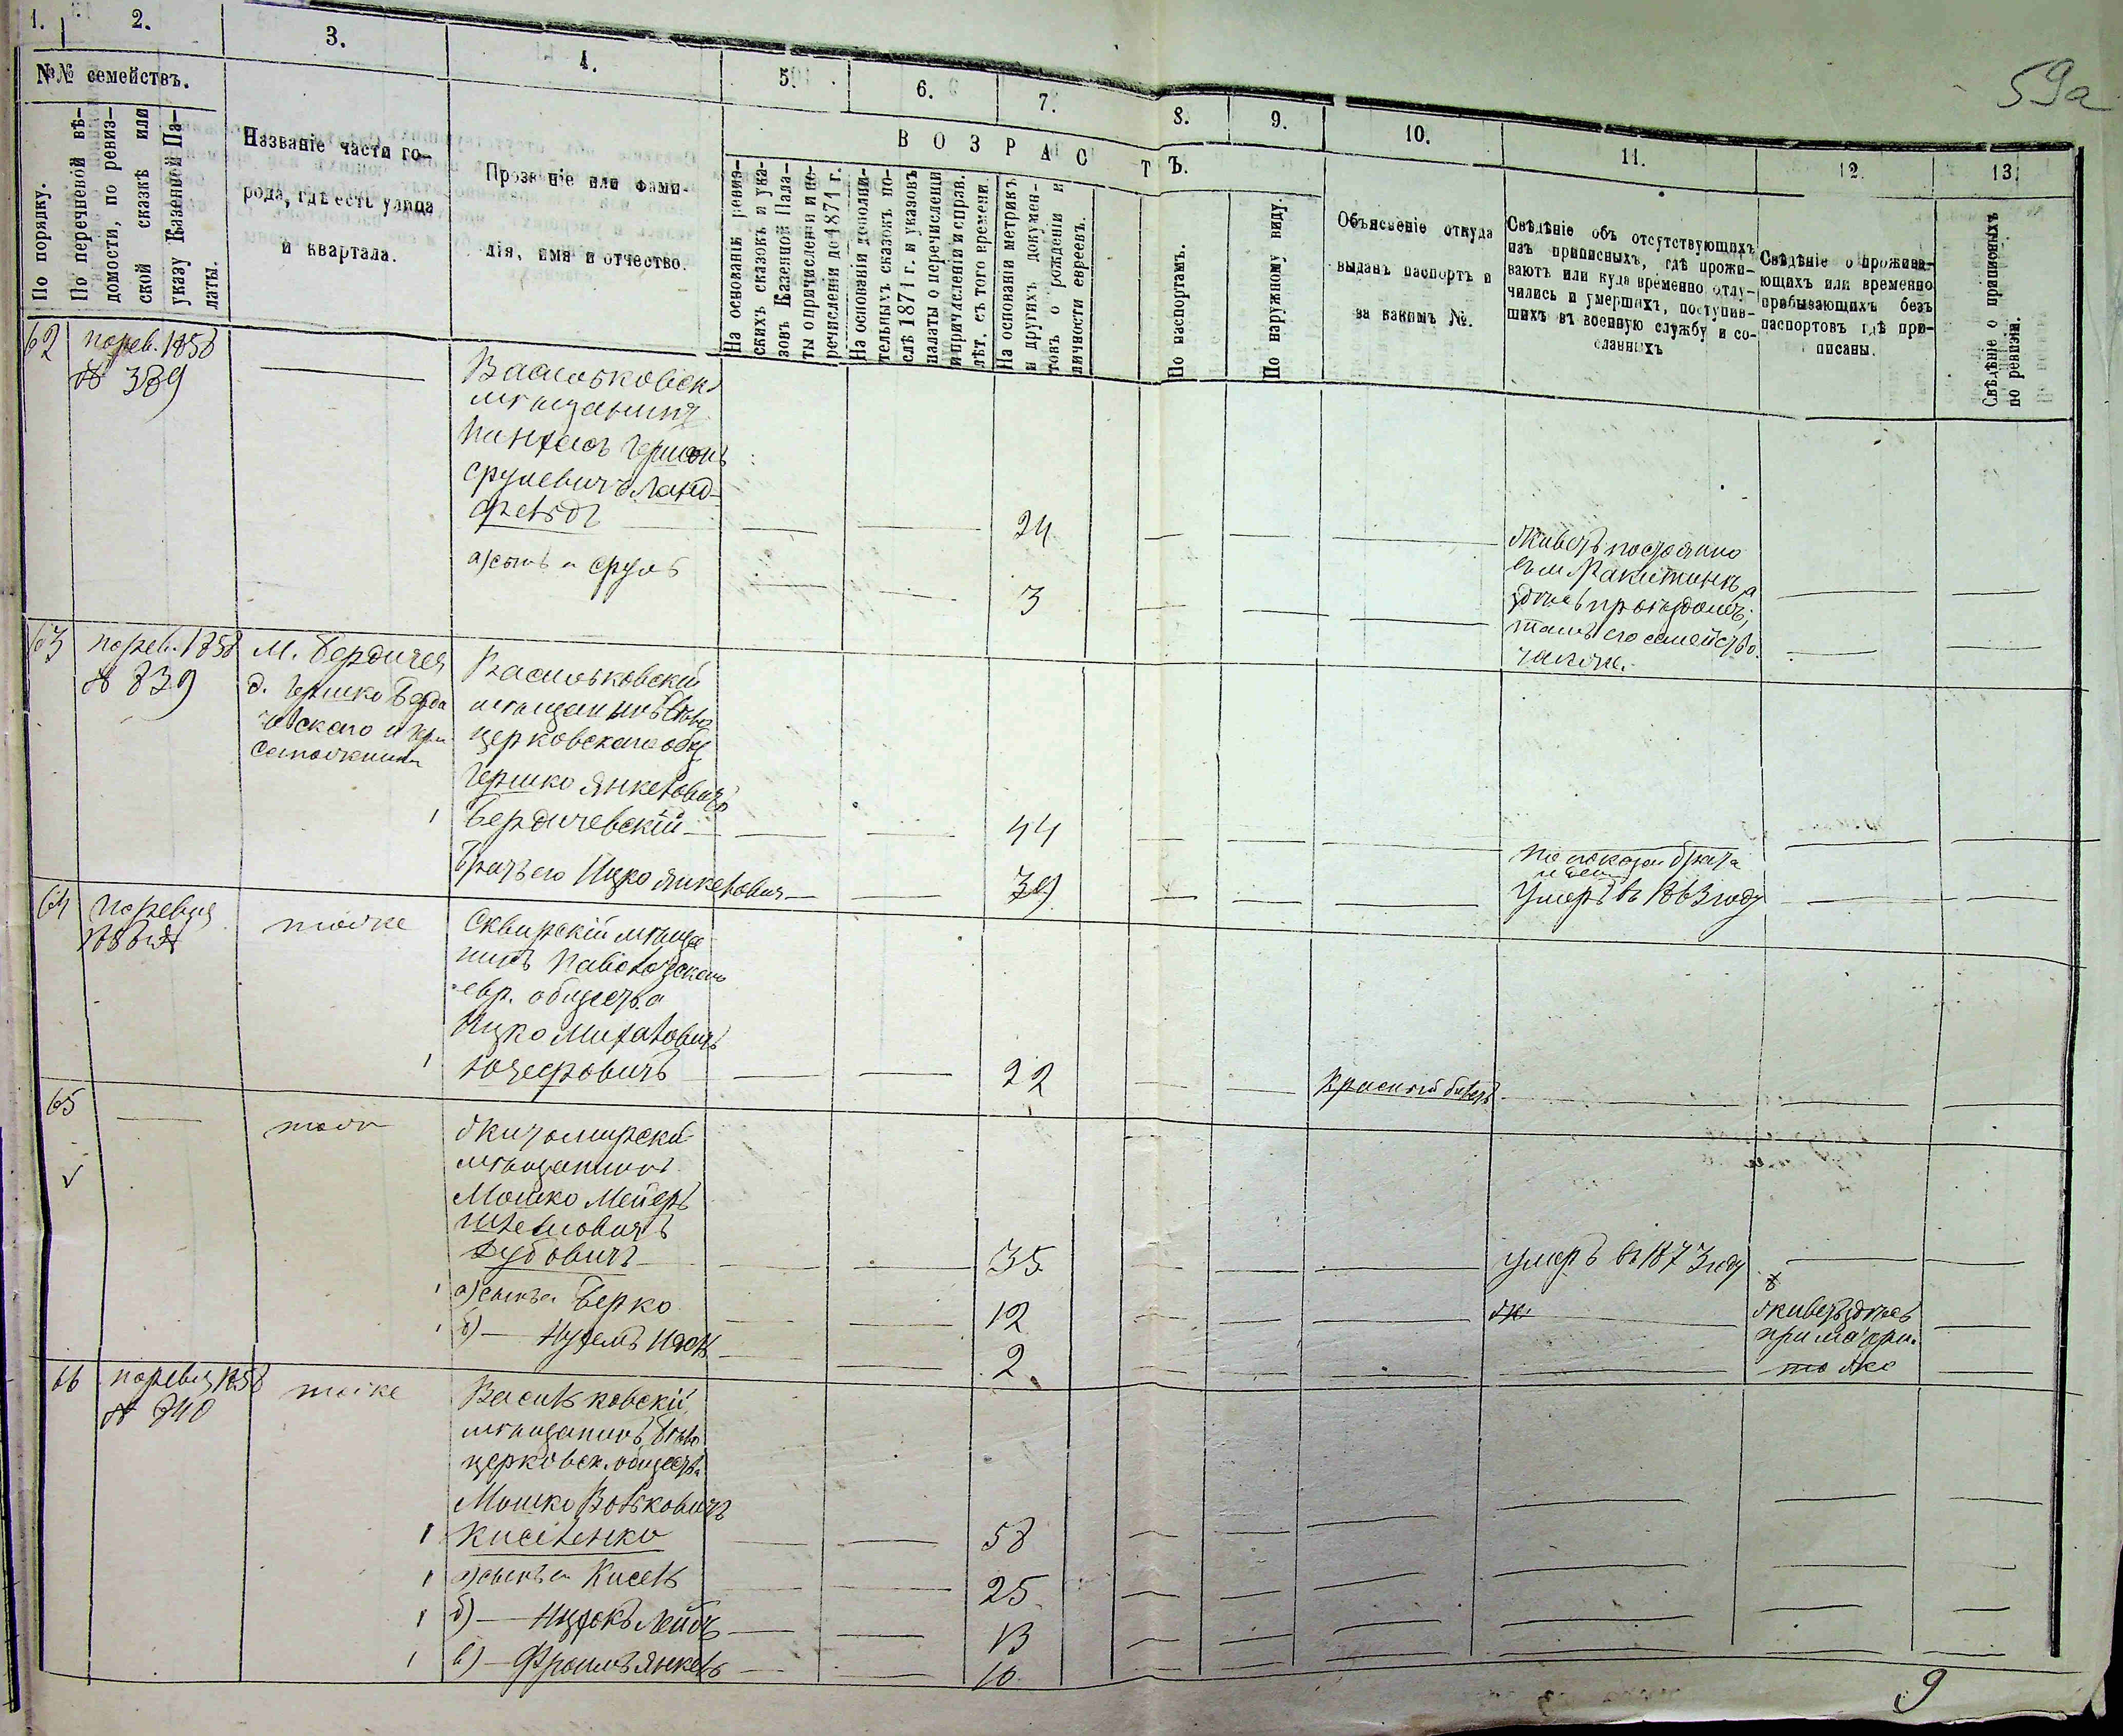 59а
1. 2. 3. 4. 5. 6. 7. 8. 9. 10. 11. 12. 13.
№№ семействъ.
По порядку.
По перечневой вѣ-
домости, по ревиз-
ской сказкѣ или
указу Казенной Па-
латы.
Названіе части го-
рода, гдѣ есть улица
и квартала.
Прозваніе или фами-
лія, имя и отчество.
ВОЗРАСТЪ.
На основаніи ревиз-
скихъ сказокъ и ука-
зовъ Казенной Пала-
ты о причисленіи и по-
речисленіи до 1871 г.
На основаніи дополни-
тельныхъ сказокъ по-
слѣ 1871 г. и указовъ
палаты о перечисленіи
и причисленіи и справ.
лѣт. съ того времени.
На основаніи метрикъ
и другихъ докумен-
товъ о рожденіи и
личности евреевъ.
По паспортамъ.
По наружному виду.
Объясненіе откуда
выданъ паспортъ и
за какимъ №.
Свѣдѣніе объ отсутствующихъ
изъ приписныхъ, гдѣ прожи-
ваютъ или куда временно отлу-
чились и умершихъ, поступив-
шихъ въ военную службу и со-
сланныхъ
Свѣдѣніе о прожива-
ющихъ или временно
пребывающихъ безъ
паспортовъ гдѣ при-
писаны.
Свѣдѣніе о приписныхъ
по ревизіи.
62 по рев. 1858
№ 389
Васильковскі
мѣщанинъ
Пинхасъ Гершонъ
Срулевичъ Ланд-
фельдъ 24
а) сынъ Сруль 3
Живетъ постоянно
въ м. Ракитинкѣ а
здѣсь проѣздомъ,
тамъ его семейство
63 по рев. 1858
№ 839
М. Бердичев
д. Гершко Берди
чевскаго
Васильковскій
мѣщанинъ Бѣло
церковскаго общ
Гершко Янкелевичъ
Бердичевскій 44
Братъ его Ицко Янкелевич 39
По показан брата
умеръ въ 1863 году
64 по ревиз
тоже
Сквирскій мѣща
нинъ Паволочскаго
евр. общества
Ицко Михалевичъ
Юзефовичъ 22
Красный билетъ
65
тоже
Житомирскі
мѣщанинъ
Мошко Мейеръ
Шлемовичъ
Дубовичъ 35
умеръ въ 1873 году
а) сынъ Берко 12
живетъ здѣсь
при матери.
б) — Нухемъ Ицек 2
тоже
66 по ревиз 1858
№ 840
тоже
Васильковскій
мѣщанинъ Бѣло
церковск. общества
Мошко Вольковичъ
Киселенко 58
а) сынъ Кисель 25
б) — Ицхокъ Лейбъ 13
в) — Фроимъ Янкель 10
9